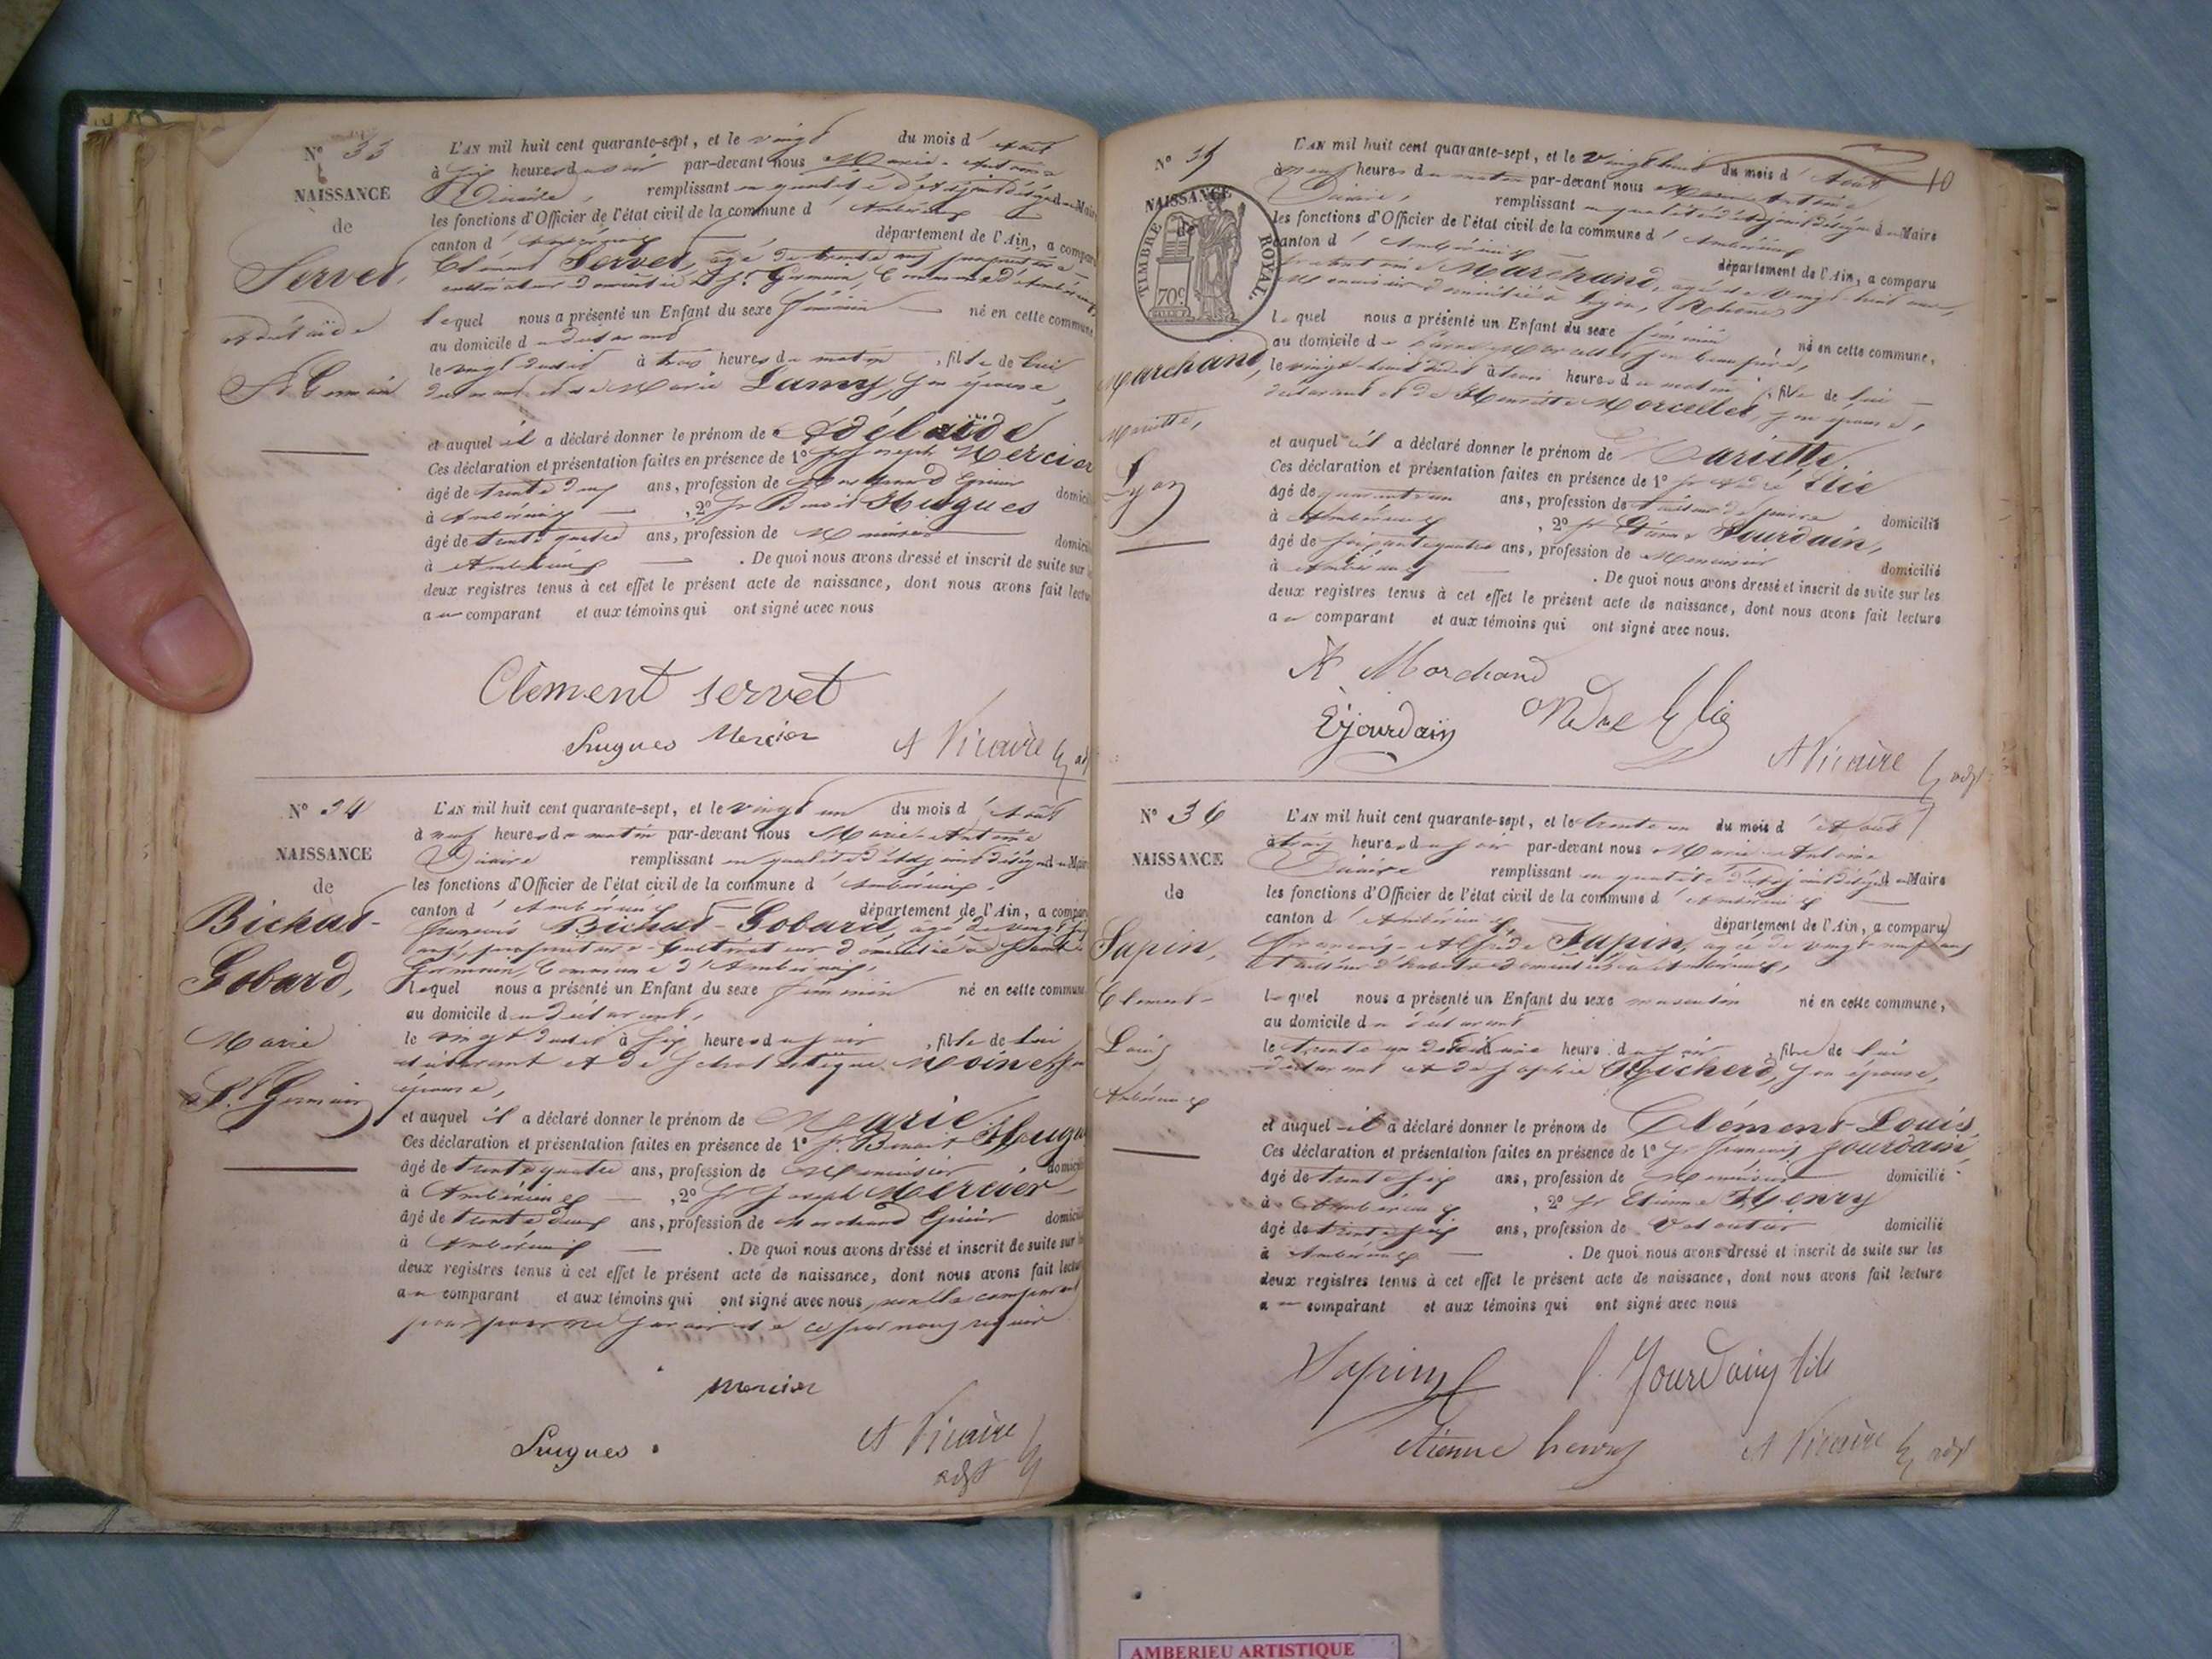 N° 33
NAISSANCE
de
Servet,
Adélaïde
St Germain
L'AN mil huit cent quarante-sept, et le vingt du mois d'Août
à six heures du soir par-devant nous Marie-Antoine
Vicaire, remplissant en qualité d'Adjoint désigné du Maire
les fonctions d'Officier de l'état civil de la commune d'Ambérieux
canton d'Ambérieux département de l'Ain, a compar
Clément Servet, âgé de trente ans, propriétaire
cultivateur domicilié à St Germain, Commune d'Ambérieux
lequel nous a présenté un Enfant du sexe féminin né en cette commune
au domicile du déclarant
le vingt dudit à trois heures du matin, fille de lui
déclarant et de Marie Lamy, son épouse,
et auquel il a déclaré donner le prénom de Adélaïde
Ces déclaration et présentation faites en présence de 1° Sr Joseph Mercier
âgé de trente deux ans, profession de Marchand Epicier domicil
à Ambérieux, 2° Sr Benoit Hugues
âgé de trente quatre ans, profession de Menuisier domicil
à Ambérieux. De quoi nous avons dressé et inscrit de suite sur
deux registres tenus à cet effet le présent acte de naissance, dont nous avons fait lectu
au comparant et aux témoins qui ont signé avec nous
Clement servet
hugues Mercier A Vicaire adj
N° 34
NAISSANCE
de
Bichat-
Gobard,
Marie
St Germain
L'AN mil huit cent quarante-sept, et le vingt un du mois d'Août
à neuf heures du matin par-devant nous Marie-Antoine
Vicaire remplissant en qualité d'Adjoint désigné du Maire
les fonctions d'Officier de l'état civil de la commune d'Ambérieux,
canton d'Ambérieux département de l'Ain, a compar
François Bichat-Gobard, âgé de vingt six
ans, propriétaire-Cultivateur domicilié à Saint
Germain, Commune d'Ambérieux,
lequel nous a présenté un Enfant du sexe féminin né en cette commune
au domicile du déclarant,
le vingt dudit à six heures du soir, fille de lui
déclarant et de Scholastique Moine, son
épouse,
et auquel il a déclaré donner le prénom de Marie
Ces déclaration et présentation faites en présence de 1° Sr Benoit Hugu
âgé de trente quatre ans, profession de Menuisier domicil
à Ambérieux, 2° Sr Joseph Mercier
âgé de trente deux ans, profession de Marchand Epicier domicil
à Ambérieux. De quoi nous avons dressé et inscrit de suite sur
deux registres tenus à cet effet le présent acte de naissance, dont nous avons fait lectu
au comparant et aux témoins qui ont signé avec nous, non le comparant
pour ne savoir de ce par nous requis
mercier
hugues A Vicaire
adjt
10
N° 35
NAISSANCE
de
TIMBRE ROYAL.
70c
Marchand,
Mariette,
Lyon
L'AN mil huit cent quarante-sept, et le vingt huit du mois d'Août
à neuf heures du matin par-devant nous Marie Antoine
Vicaire, remplissant en qualité d'Adjoint désigné du Maire
les fonctions d'Officier de l'état civil de la commune d'Ambérieux
canton d'Ambérieux département de l'Ain, a comparu
Marchand, âgé de vingt huit ans,
Menuisier domicilié à Lyon, (Rhône)
lequel nous a présenté un Enfant du sexe féminin, né en cette commune,
au domicile de Morcellet son beau père,
le vingt-huit dudit à trois heures du matin, fille de lui
déclarant et de Henriette Morcellet, son épouse,
et auquel il a déclaré donner le prénom de Mariette
Ces déclaration et présentation faites en présence de 1° Sr André Elie
âgé de quarante un ans, profession de tailleur de pierre domicilié
à Ambérieux, 2° Sr Etienne Jourdain,
âgé de soixante quatre ans, profession de Menuisier domicilié
à Ambérieux. De quoi nous avons dressé et inscrit de suite sur les
deux registres tenus à cet effet le présent acte de naissance, dont nous avons fait lecture
au comparant et aux témoins qui ont signé avec nous.
A Marchand
E jourdain André Elie
A Vicaire adjt
N° 36
NAISSANCE
de
Sapin,
Clément-
Louis
Ambérieux
L'AN mil huit cent quarante-sept, et le trente un du mois d'Août
à trois heures du soir par-devant nous Marie-Antoine
Vicaire remplissant en qualité d'Adjoint désigné du Maire
les fonctions d'Officier de l'état civil de la commune d'Ambérieux
canton d'Ambérieux département de l'Ain, a comparu
François-Alfrède Sapin, âgé de vingt-neuf ans
tailleur d'habits domicilié à Ambérieux,
lequel nous a présenté un Enfant du sexe masculin né en cette commune,
au domicile du déclarant
le trente un dudit à une heure du soir, fils de lui
déclarant et de Sophie Richerd, son épouse,
et auquel il a déclaré donner le prénom de Clément-Louis
Ces déclaration et présentation faites en présence de 1° Sr François Jourdain,
âgé de trente six ans, profession de Menuisier domicilié
à Ambérieux, 2° Sr Etienne Henry
âgé de trente six ans, profession de domicilié
à Ambérieux. De quoi nous avons dressé et inscrit de suite sur les
deux registres tenus à cet effet le présent acte de naissance, dont nous avons fait lecture
au comparant et aux témoins qui ont signé avec nous
Sapin f. Jourdain fils
etienne henry A Vicaire adjt
AMBERIEU ARTISTIQUE